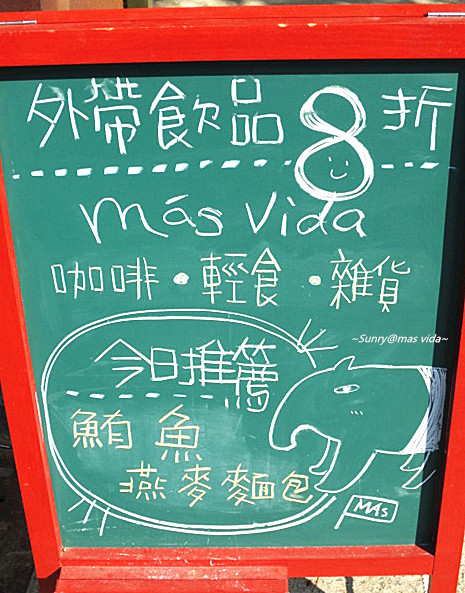 外帶飲品8折
más vida
咖啡・輕食・雜貨
~Sunry@mas vida~
今日推薦
鮪魚
燕麥麵包
MAS